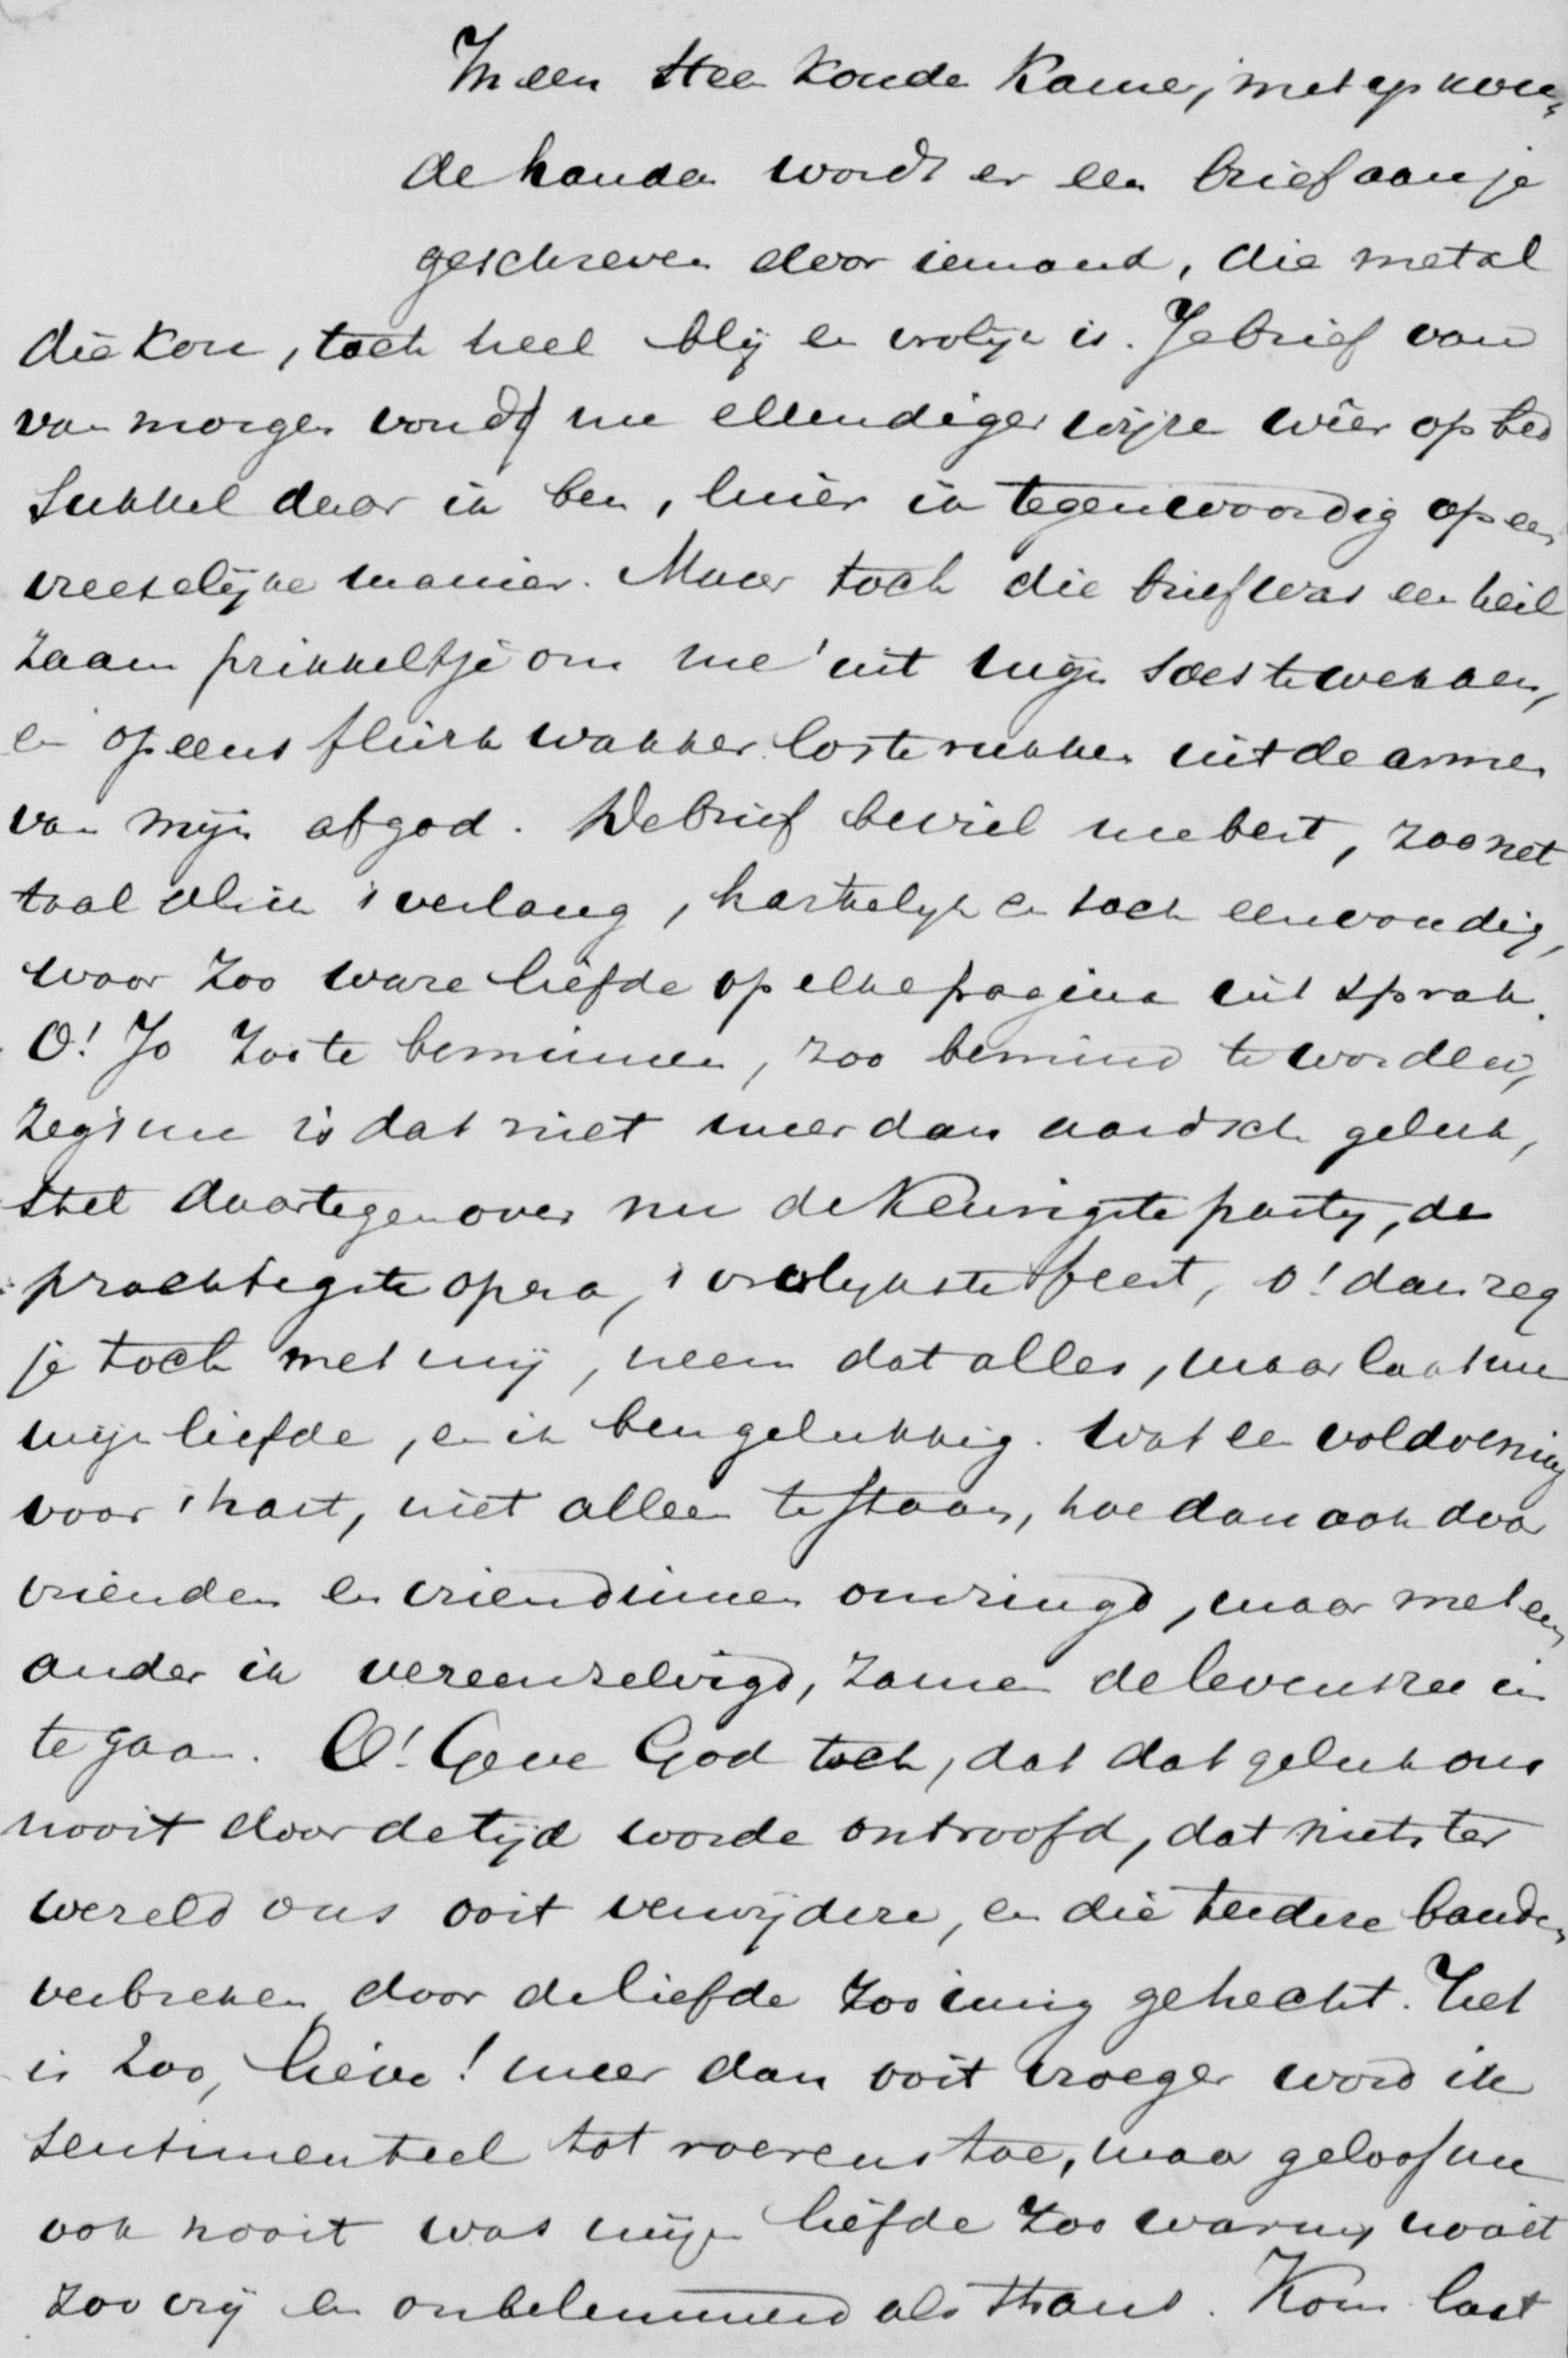 In een steen koude kamer, met ijs kou=
de handen wordt er een brief aan je
geschreven door iemand, die met al
die kou, toch heel blij en vrolijk is. Je brief van
van morgen vond me ellendiger wijze wéér op bed
Sukkel daar ik ben, luier ik tegenwoordig op een
vreeselijke manier. Maar toch die brief was een heil
zaam prikkeltje om me uit mijn soes te wekken,
en opeens flink wakker los te rukken uit de armen
van mijn afgod. De brief beviel me best, zoo net
zoo als ik 't verlang, hartelijk en toch eenvoudig,
waar zoo ware liefde op elke pagina uit sprak.
O! Jo zoo te beminnen, zoo bemind te worden,
zegt me is dat niet meer dan aardsch geluk,
stel daartegenover nu de keurigste party, de
prachtigste opera, 't vrolijkste feest, o! dan zeg
je toch met mij, neem dat alles, maar laat me
mijn liefde, en ik ben gelukkig. Wat een voldoening
voor 't hart, niet alleen te staan, hoe dan ook door
vrienden en vriendinnen omringd, maar met een
ander ik vereenzelvigd, zamen de levenszee in
te gaan. O! Geve God toch, dat dat geluk ons
nooit door de tijd worde ontroofd, dat niets ter
wereld ons ooit verwijdere, en die teedere banden
verbreken door de liefde zoo innig gehecht. Het
is zoo, lieve! meer dan ooit vroeger word ik
sentimenteel tot roerens toe, maar geloof me
ook nooit was mijn liefde zoo warm, nooit
zoo vrij en onbelemmerd als thans. Kom laat